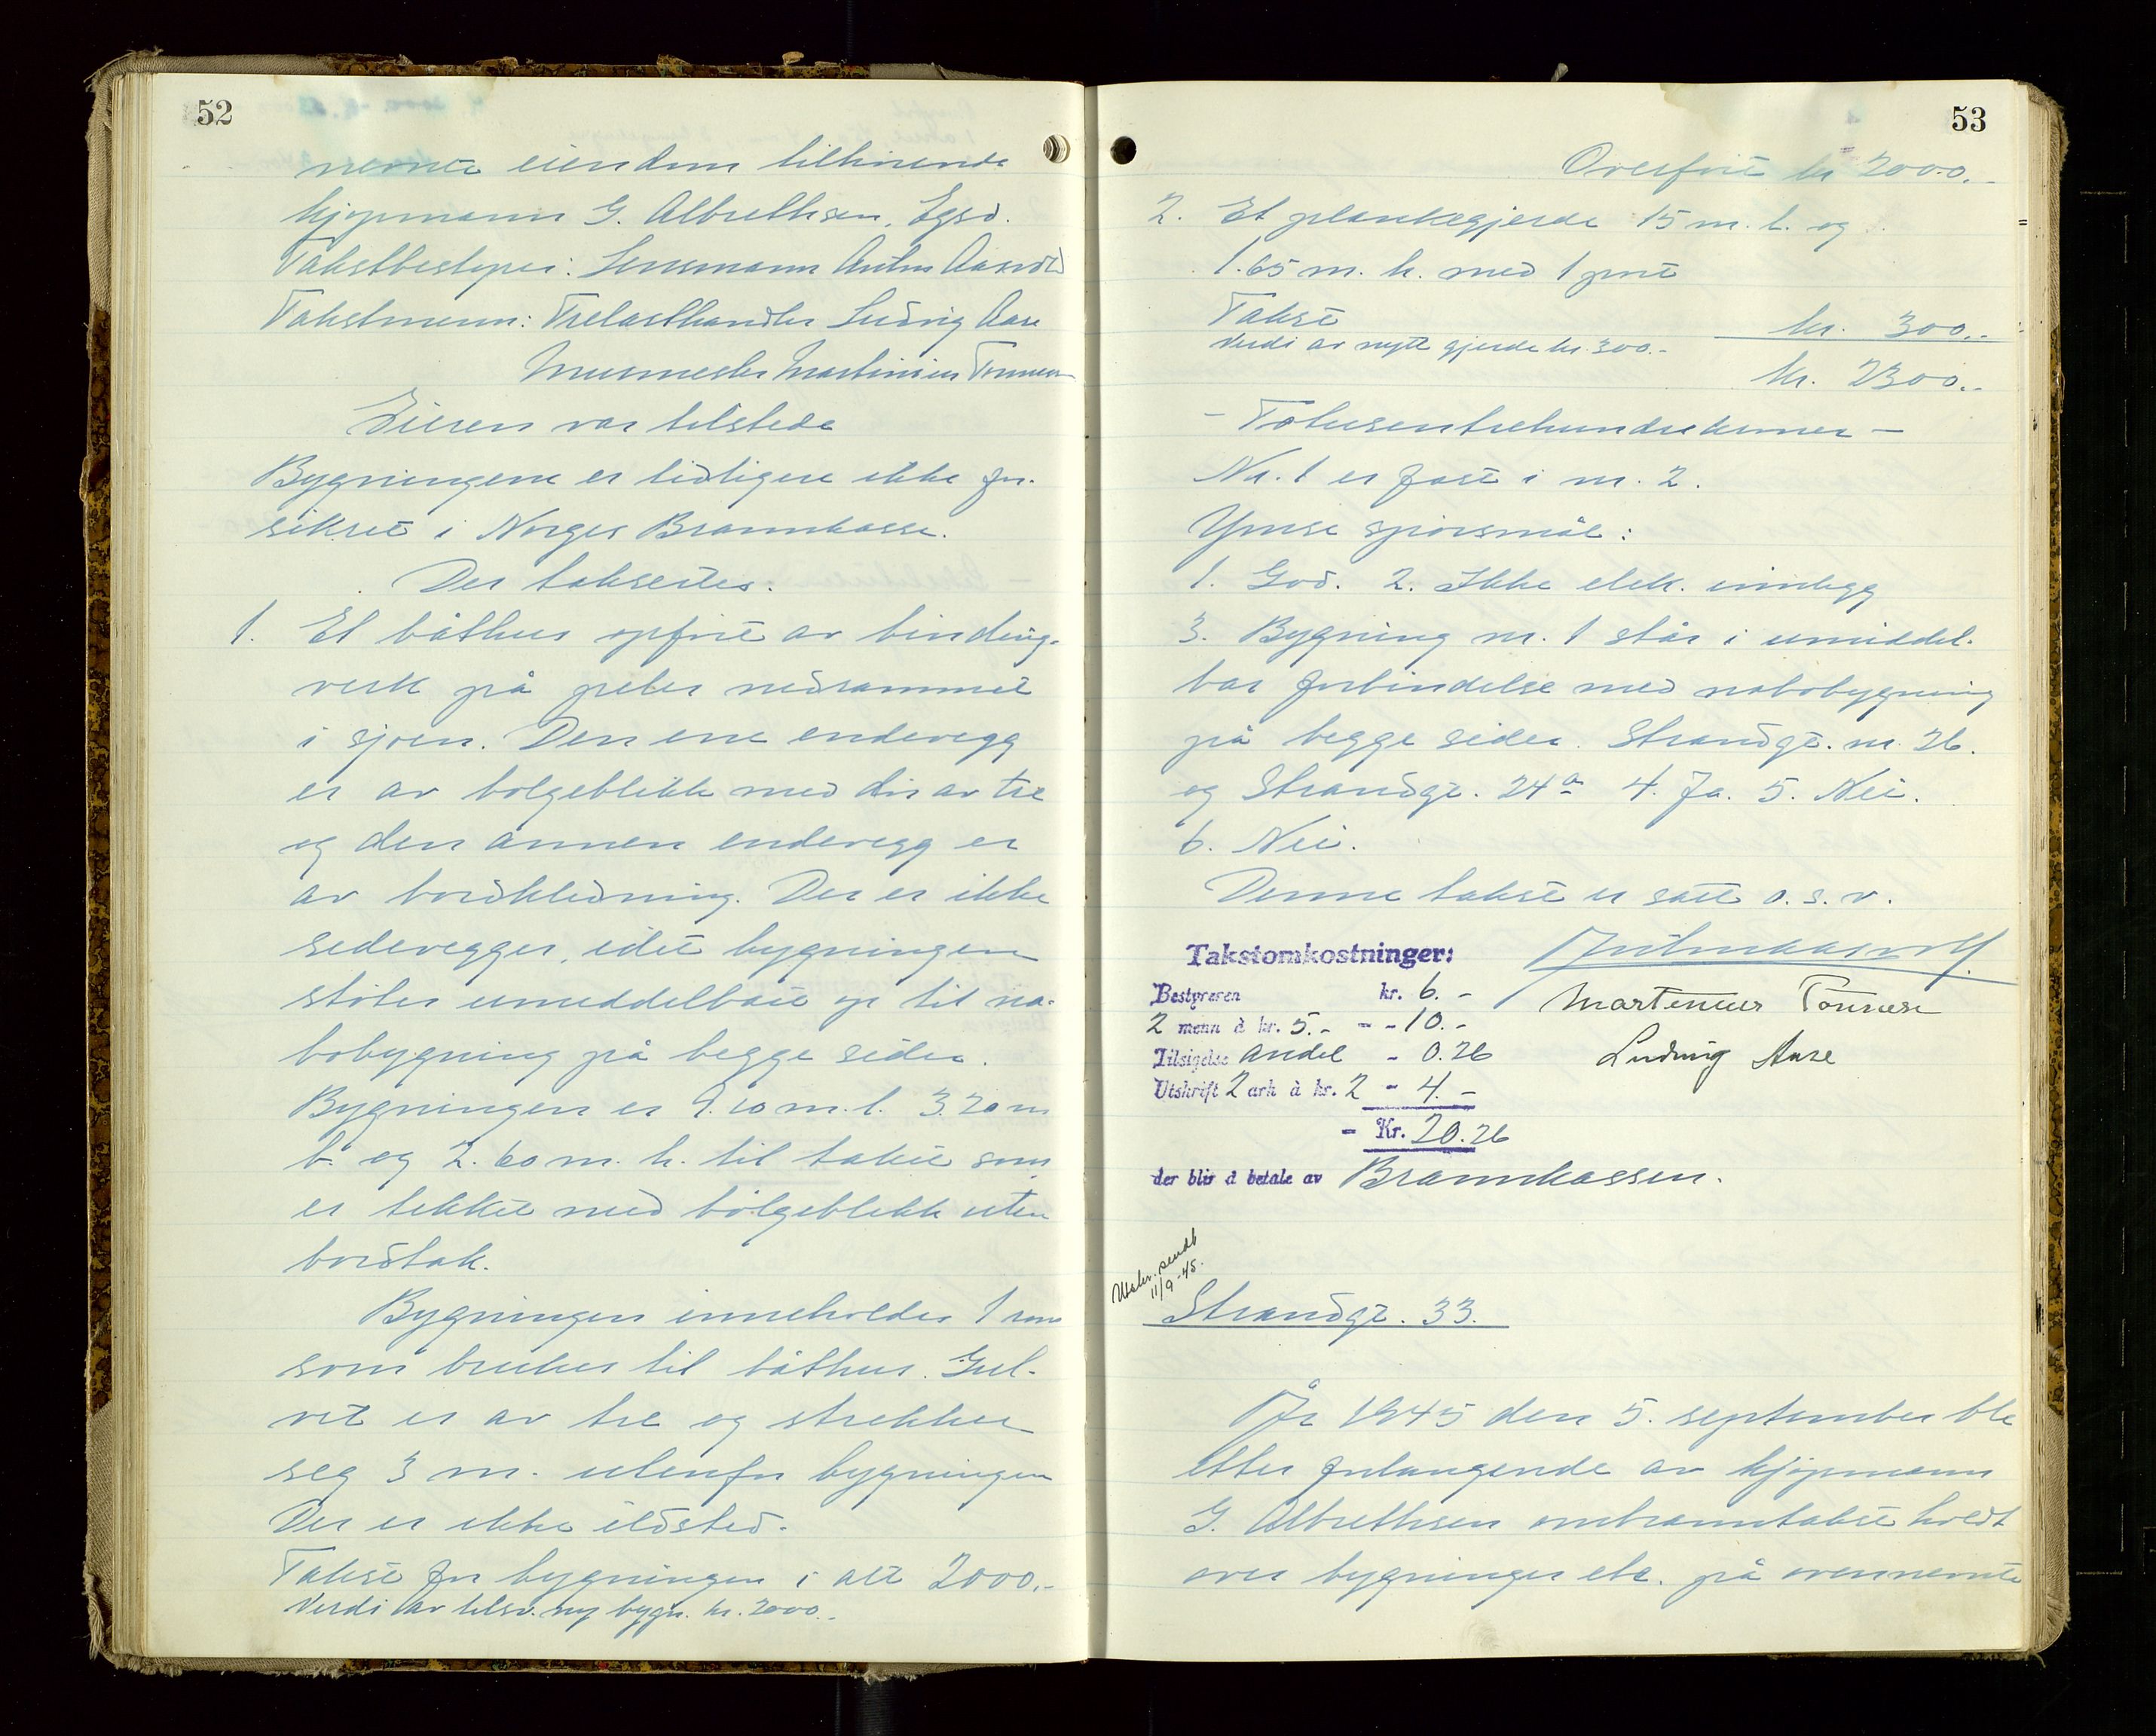 52
nevnte eiendom tilhørende
kjøpmann G. Albrethsen, Egsd.
Takstbestyrer: Lensmann Anton Aarstad
Takstmenn: Trelasthandler Ludvig Aase
Murmester Martinius Tønnesen
Eieren var tilstede
Bygningene er tidligere ikke for-
sikret i Norges Brannkasse.
Der takseres:
1. Et båthus opført av binding-
verk på peler nedrammet
i sjøen. Den ene endevegg
er av bølgeblikk med dør av tre
og den annen endevegg er
av bordkledning. Der er ikke
sidevegger, idet bygningen
støter umiddelbart op til na-
bobygning på begge sider.
Bygningen er 9.10 m. l. 3.20 m
b. og 2.60 m. h. til taket som
er tekket med bølgeblikk uten
bordtak.
Bygningen inneholder 1 rom
som brukes til båthus. Gul-
vet er av tre og strekker
seg 3 m. utenfor bygningen
Der er ikke ildsted.
Takst for bygningen i alt 2000.-
Verdi av tilsv. ny bygn. kr. 2000.-
53
Overført kr 2000.-
2. Et plankegjerde 15 m. l. og
1.65 m. h. med 1 port
Takst kr. 300.-
Verdi av nytt gjerde kr. 300.-
kr. 2300.-
- Totusentrehundrekroner -
Nr. 1 er fast i nr. 2.
Ymse spørsmål:
1. God. 2. Ikke elek. innlegg
3. Bygning nr. 1 står i umiddel-
bar forbindelse med nabobygning
på begge sider. Strandgt. nr. 26.
og Strandgt. 24a 4. Ja. 5. Nei.
6. Nei.
Denne takst er satt o. s. v.
Takstomkostninger:
Bestyreren kr. 6.-
Martinius Tønnesen
2 menn à kr. 5.- - - 10.-
Tilsigelse andel - 0.26
Ludvig Aase
Utskrift 2 ark à kr. 2 - 4.-
- Kr. 20.26
der blir å betale av Brannkassen.
Utskr. sendt
11/9-45.
Strandgt. 33.
År 1945 den 5. september ble
etter forlangende av kjøpmann
G. Albrethsen ombranntakst holdt
over bygninger etc. på ovennevnte